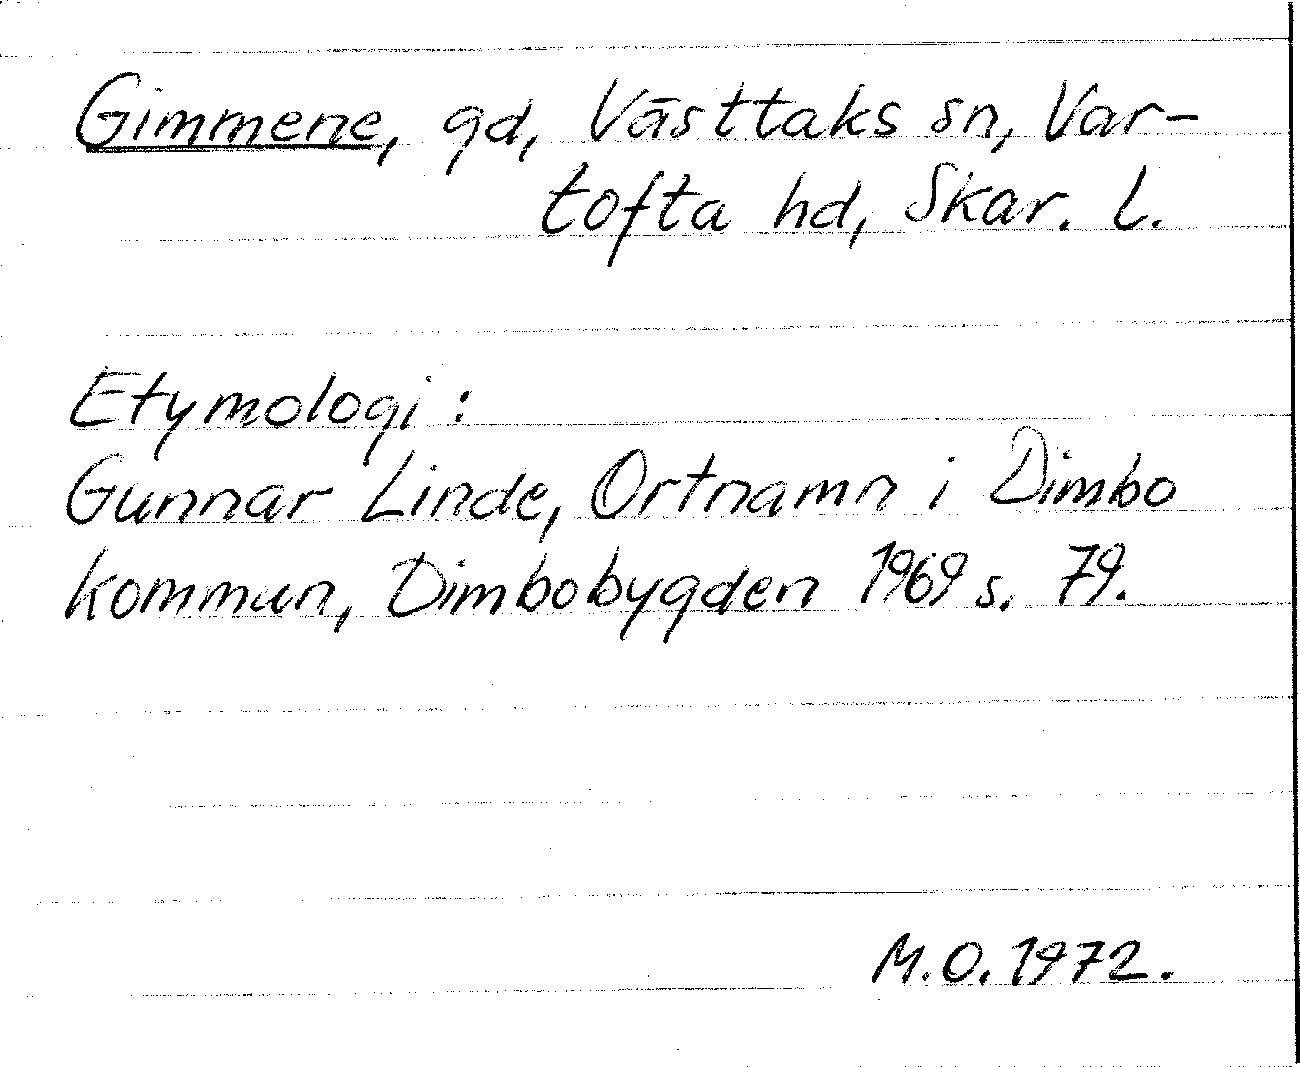 Gimmene, gd, Västtaks sn, Var-
tofta hd, Skar. l.
Etymologi:
Gunnar Linde, Ortnamn i Dimbo
kommun, Dimbobygden 1969 s. 79.
M.O. 1972.